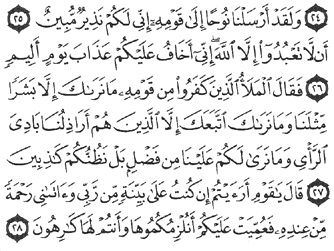 ٢٤ وَلَقَدْ أَرْسَلْنَا نُوحًا إِلَىٰ قَوْمِهِۦٓ إِنِّى لَكُمْ نَذِيرٌ مُّبِينٌ ٢٥
أَن لَّا تَعْبُدُوٓا۟ إِلَّا ٱللَّهَ ۖ إِنِّىٓ أَخَافُ عَلَيْكُمْ عَذَابَ يَوْمٍ أَلِيمٍ
٢٦ فَقَالَ ٱلْمَلَأُ ٱلَّذِينَ كَفَرُوا۟ مِن قَوْمِهِۦ مَا نَرَىٰكَ إِلَّا بَشَرًا
مِّثْلَنَا وَمَا نَرَىٰكَ ٱتَّبَعَكَ إِلَّا ٱلَّذِينَ هُمْ أَرَاذِلُنَا بَادِىَ
ٱلرَّأْىِ وَمَا نَرَىٰ لَكُمْ عَلَيْنَا مِن فَضْلٍۭ بَلْ نَظُنُّكُمْ كَـٰذِبِينَ
٢٧ قَالَ يَـٰقَوْمِ أَرَءَيْتُمْ إِن كُنتُ عَلَىٰ بَيِّنَةٍ مِّن رَّبِّى وَءَاتَىٰنِى رَحْمَةً
مِّنْ عِندِهِۦ فَعُمِّيَتْ عَلَيْكُمْ أَنُلْزِمُكُمُوهَا وَأَنتُمْ لَهَا كَـٰرِهُونَ ٢٨